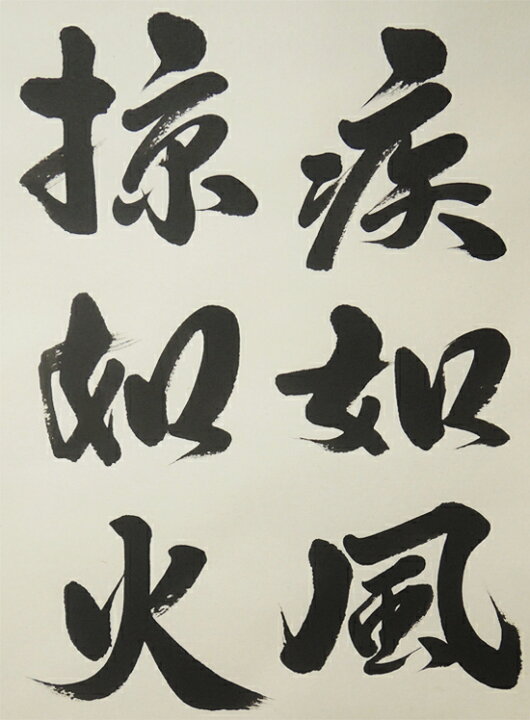 疾如風
掠如火